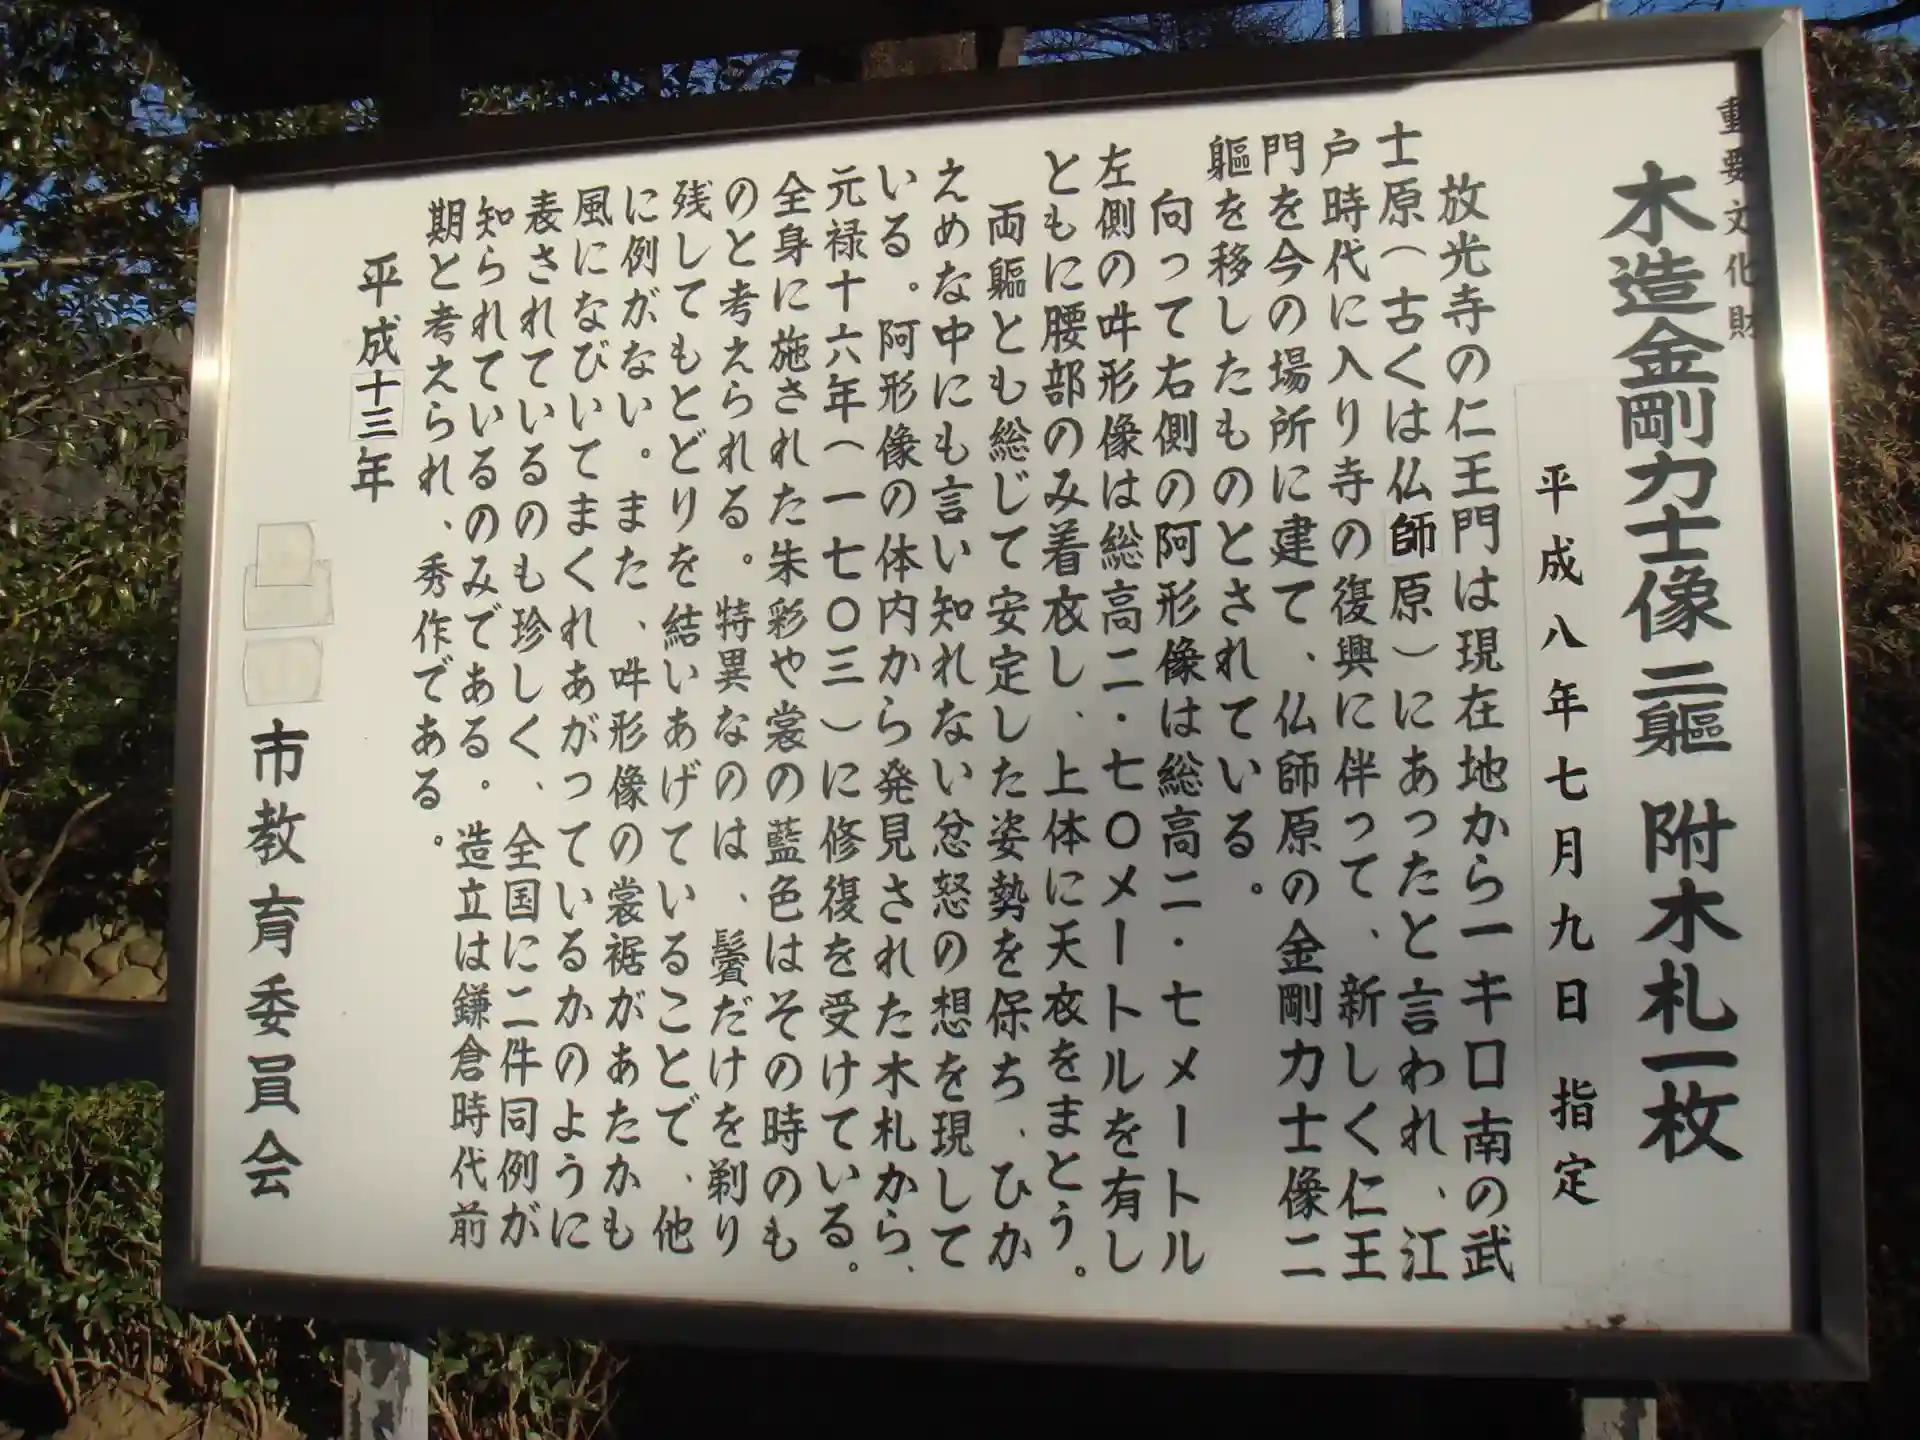 重要文化財
木造金剛力士像二軀 附木札一枚
平成八年七月九日 指定
放光寺の仁王門は現在地から一キロ南の武
士原（古くは仏師原）にあったと言われ、江
戸時代に入り寺の復興に伴って、新しく仁王
門を今の場所に建て、仏師原の金剛力士像二
軀を移したものとされている。
向って右側の阿形像は総高二・七メートル
左側の吽形像は総高二・七〇メートルを有し
ともに腰部のみ着衣し、上体に天衣をまとう。
両軀とも総じて安定した姿勢を保ち、ひか
えめな中にも言い知れない忿怒の想を現して
いる。阿形像の体内から発見された木札から、
元禄十六年（一七〇三）に修復を受けている。
全身に施された朱彩や裳の藍色はその時のも
のと考えられる。特異なのは、鬢だけを剃り
残してもとどりを結いあげていることで、他
に例がない。また、吽形像の裳裾があたかも
風になびいてまくれあがっているかのように
表されているのも珍しく、全国に二件同例が
知られているのみである。造立は鎌倉時代前
期と考えられ、秀作である。
平成十三年
市教育委員会